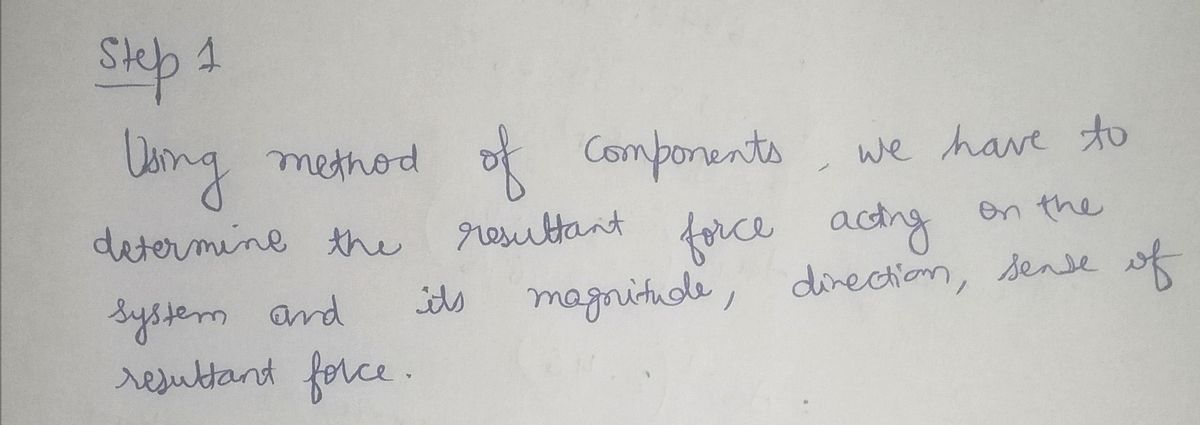 Step 1
Using method of components, we have to
determine the resultant force acting on the
system and its magnitude, direction, sense of
resultant force.